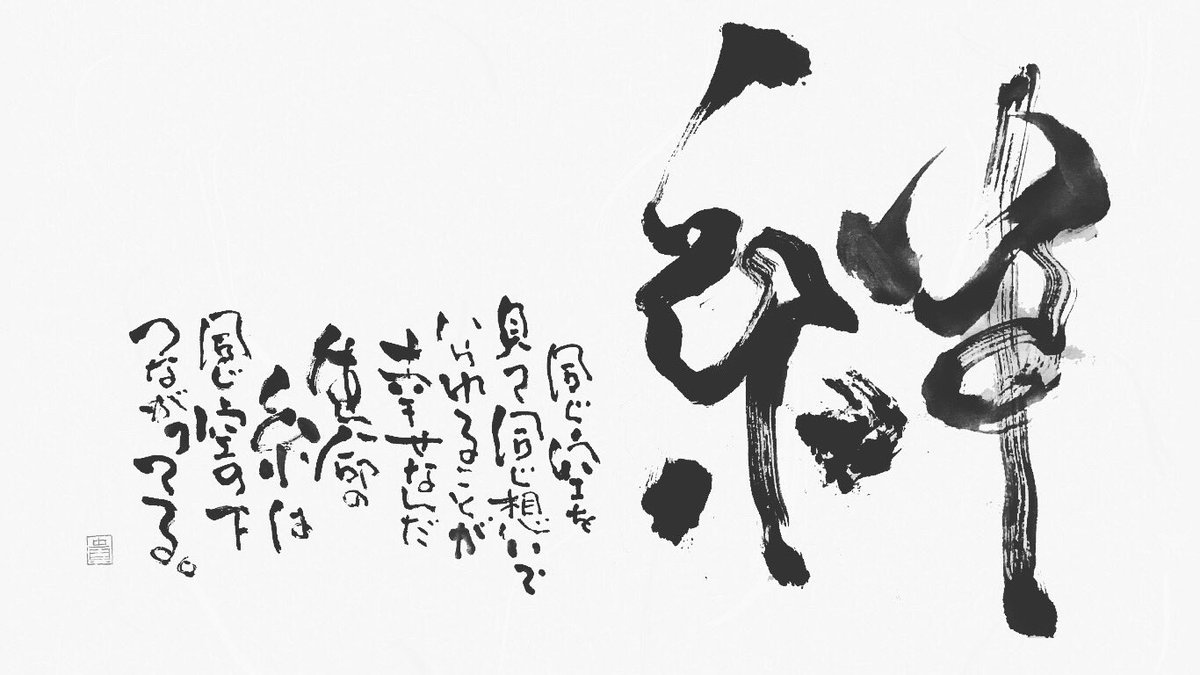 絆
同じ空を
見て同じ想いで
いられることが
幸せなんだ
運命の
糸は
同じ空の下
つながってる。